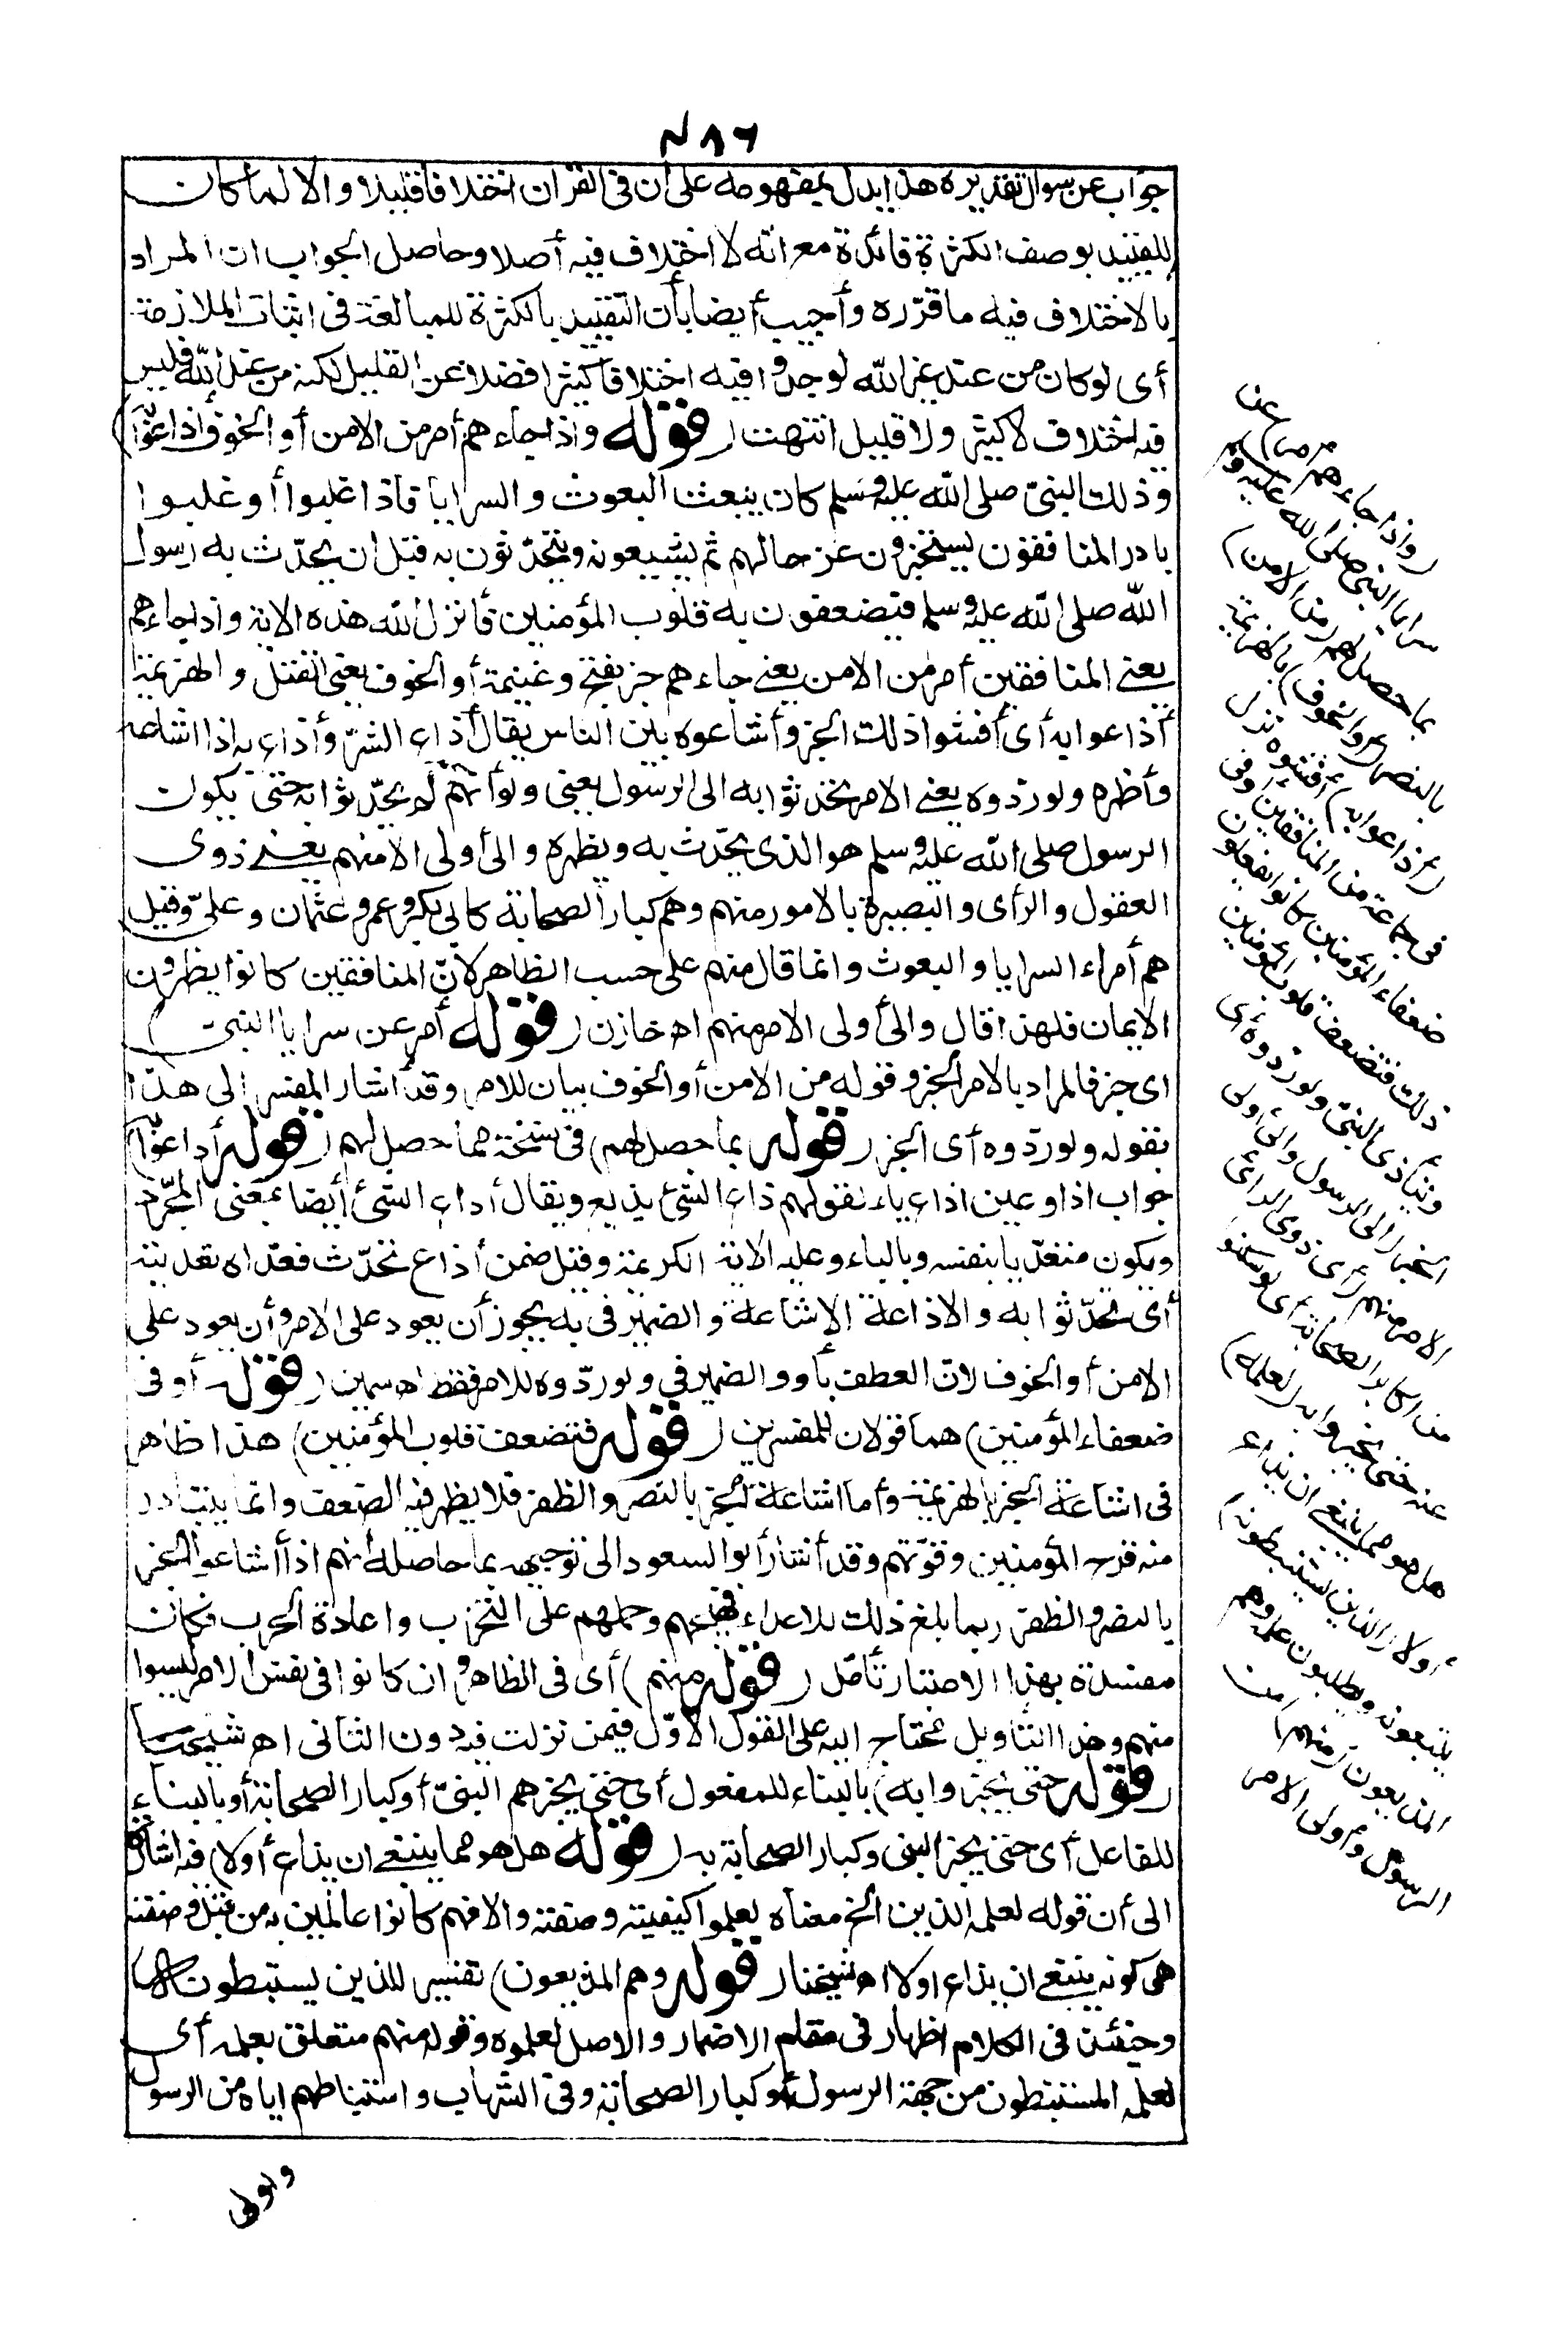 ٤٨٦
جواب عن سوال تقديره هذا يدل بمفهومه على أن في القرآن اختلافا قليلا والا لما كان
للتقييد بوصف الكثرة فائدة مع انه لا اختلاف فيه أصلا وحاصل الجواب ان المراد
بالاختلاف فيه ما قرّره وأجيب أيضا بأن التقييد بالكثرة للمبالغة في اثبات الملازمة
أى لو كان من عند غير الله لوجدوا فيه اختلافا كثيرا فضلا عن القليل لكنه من عند الله فليس
فيه اختلاف لا كثير ولا قليل انتهت (قوله واذا جاءهم أمر من الامن أو الخوف أذاعوا)
وذلك النبيّ صلى الله عليه وسلم كان يبعث البعوث والسرايا فاذا غلبوا أو غلبوا
بادر المنافقون يستخبرون عن حالهم ثم يشيعونه ويتحدّثون به قبل ان يحدّث به رسول
الله صلى الله عليه وسلم فيضعفون به قلوب المؤمنين فأنزل الله هذه الاية واذا جاءهم
يعنى المنافقين أمر من الامن يعنى جاءهم خبر بفتح وغنيمة أو الخوف يعنى القتل والهزيمة
أذاعوا به أى أفشوا ذلك الخبر وأشاعوه بين الناس يقال أذاع السّر وأذاع به اذا اشاعه
وأظهره ولو ردّوه يعنى الامر تحدثوا به الى الرسول يعنى ولو أنهم لم يحدّثوا به حتى يكون
الرسول صلى الله عليه وسلم هو الذى يحدّث به ويظهره والى أولى الامر منهم يعنى ذوى
العقول والرأى والبصيرة بالامور منهم وهم كبار الصحابة كابى بكر وعمر وعثمان وعلىّ وقيل
هم أمراء السرايا والبعوث وانما قال منهم على حسب الظاهر لانّ المنافقين كانوا يظهرون
الايمان فلهذا قال والى أولى الامر منهم اه خازن (قوله أمر عن سرايا النبىّ)
اى خبر فالمراد بالامر الخبر وقوله من الامن أو الخوف بيان للامر وقد أشار المفسر الى هذا
بقوله ولو ردّوه أى الخبر (قوله بما حصل لهم) فى نسخة مما حصل لهم (قوله أذاعوا)
جواب اذا وعين اذاع ياء لقولهم ذاع الشئ يذيع ويقال أذاع الشئ أيضا بمعنى المجّرد
ويكون متعدّيا بنفسه وبالباء وعليه الاية الكريمة وقيل ضمن أذاع تحدّث فعدّاه تعديته
أى تحدّثوا به والاذاعة الاشاعة والضمير فى به يجوز أن يعود على الامر وأن يعود على
الامن أو الخوف لان العطف بأو والضمير في ولو ردّوه للامر فقط اه سمين (قوله أو فى
ضعفاء المؤمنين) هما قولان للمفسرين (قوله فتضعف قلوب المؤمنين) هذا ظاهر
فى اشاعة الخبر بالهزيمة وأما اشاعة الخبر بالنصر والظفر فلا يظهر فيه الضعف وانما يتبادر
منه فرح المؤمنين وقوّتهم وقد أشار أبو السعود الى توجيهه بما حاصله أنهم اذا أشاعوا الخبر
بالنصر والظفر ربما بلغ ذلك للاعداء وحملهم على التحزب واعادة الحرب فكانت
مفسدة بهذا الاعتبار تأمّل (قوله منهم) أى فى الظاهر وان كانوا فى نفس الامر ليسوا
منهم وهذا التأويل محتاج اليه على القول الاوّل فيمن نزلت فيه دون الثانى اه شيخنا
(قوله حتى يخبروا به) بالبناء للمفعول أى حتى يخبرهم النبىّ أو كبار الصحابة أو بالبناء
للفاعل أى حتى يخبر النبى وكبار الصحابة به (قوله هل هو مما ينبغى ان يذاع أولا) فيه اشارة
الى أن قوله لعلمه الذين الخ معناه لعلموا كيفيته وصفته والا فهم كانوا عالمين به من قبل وصفته
هى كونه ينبغى ان يذاع اولا اه شيخنا (قوله وهم المذيعون) تفسير للذين يستنبطونه
وحينئذ فى الكلام اظهار فى مقام الاضمار والاصل لعلموه وقوله منهم متعلق بعلمه أى
لعلمه المستنبطون من جهة الرسول أو كبار الصحابة وفى الشهاب واستنباطهم اياه من الرسول
وأولى
(واذا جاءهم أمر) عن
سرايا النبى صلى الله عليه وسلم
بما حصل لهم (من الامن)
بالنصر (أو الخوف) بالهزيمة
(أذاعوا به) أفشوه نزل
فى جماعة من المنافقين أو فى
ضعفاء المؤمنين كانوا يفعلون
ذلك فتضعف قلوب المؤمنين
ويتأذى النبىّ ولو ردّوه أى
الخبر (الى الرسول والى أولى
الامر منهم) أى ذوى الرأى
من اكابر الصحابة أى لو سكتوا
عنه حتى يخبروا به (لعلمه)
هل هو مما ينبغى ان يذاع
أولا (الذين يستنبطونه)
يتبعونه ويطلبون علمه وهم
المذيعون (منهم) من
الرسول وأولى الامر